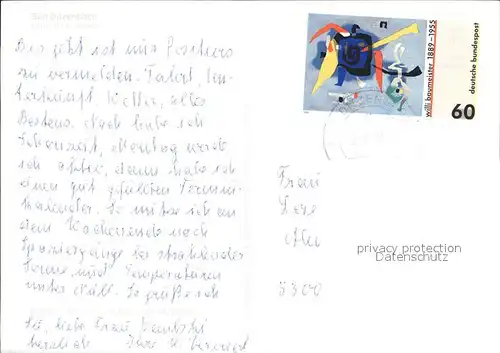 Bis jetzt ist nur Positives
zu vermelden. Fahrt, Un-
terkunft, Wetter, alles
Bestens. Noch habe ich
Schonzeit, Montag werde
ich aktiv, dann habe ich
einen gut gefüllten Termin-
kalender. So nutze ich an
dem Wochenende noch
Spaziergänge bei strahlender
Sonne und Temperaturen
unter Null. So grüße ich
Sie, liebe Frau
herzlich Ihre
willi baumeister 1889-1955
deutsche bundespost
60
Frau
5300
privacy protection
Datenschutz